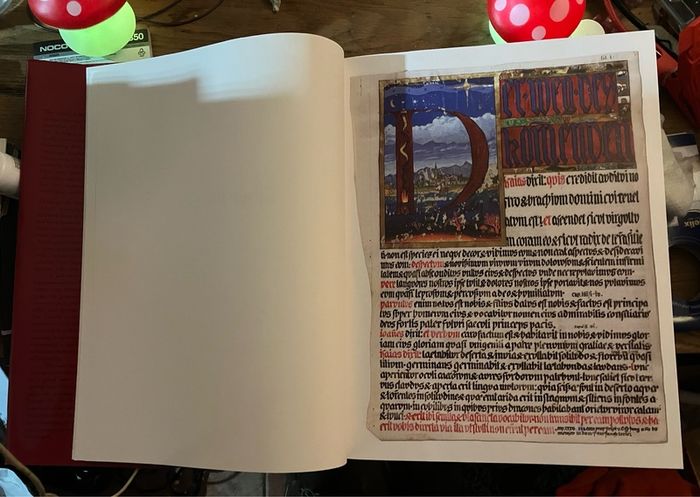 NOCO
50
fol. i
Der weg des
kom̄enden
Isaias dixit: quis credidit auditui no
stro & brachium domini cui revel
atum est? et ascendet sicut virgultu
m coram eo & sicut radix de terra sitie
nti non est species ei neque decor & vidimus eum & non erat aspectus & desideravi
mus eum: despectum & novissimum virorum virum dolorum & scientem infirmi
tatem & quasi absconditus vultus eius & despectus unde nec reputavimus eum.
vere languores nostros ipse tulit & dolores nostros ipse portavit & nos putavimus
eum quasi leprosum & percussum a deo & humiliatum. cap. liii/i-iv.
parvulus enim natus est nobis & filius datus est nobis & factus est principa
tus super humerum eius & vocabitur nomen eius admirabilis consiliarius
deus fortis pater futuri saeculi princeps pacis. caput ix/vi.
Ioannes dixit: et verbum caro factum est & habitavit in nobis & vidimus glor
iam eius gloriam quasi unigeniti a patre plenum gratiae & veritatis.
Isaias dixit: laetabitur deserta & invia & exsultabit solitudo & florebit quasi
lilium. germinans germinabit & exsultabit laetabunda & laudans. tunc
aperientur oculi caecorum & aures surdorum patebunt. tunc saliet sicut cer
vus claudus & aperta erit lingua mutorum: quia scissae sunt in deserto aquae
& torrentes in solitudine & quae erat arida erit in stagnum & sitiens in fontes a
quarum. in cubilibus in quibus prius dracones habitabant orietur viror calami
& iunci. & erit ibi semita & via & sancta vocabitur. non transibit per eam pollutus & haec
erit vobis directa via ita ut stulti non errent per eam.